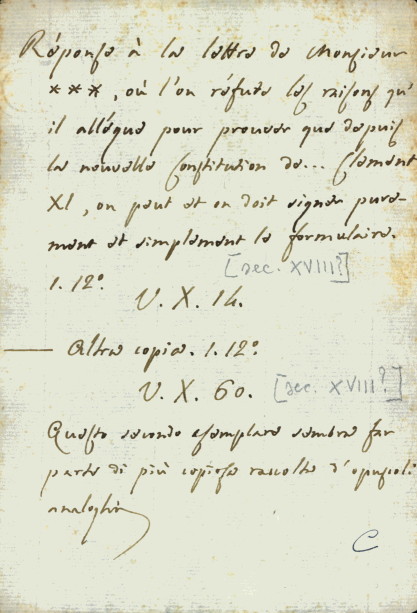 Réponse à la lettre de Monsieur
***, où l'on réfute les raisons qu'
il allégue pour prouver que depuis
la nouvelle Constitution de... Clement
XI, on peut et on doit signer pure-
ment et simplement le formulaire.
[sec. XVIII?]
1. 12.º
V. X. 14.
— Altra copia. 1. 12.º
V. X. 60. [sec. XVIII?]
Questo secondo esemplare sembra far
parte di più copiosa raccolta d'opuscoli
analoghi
C